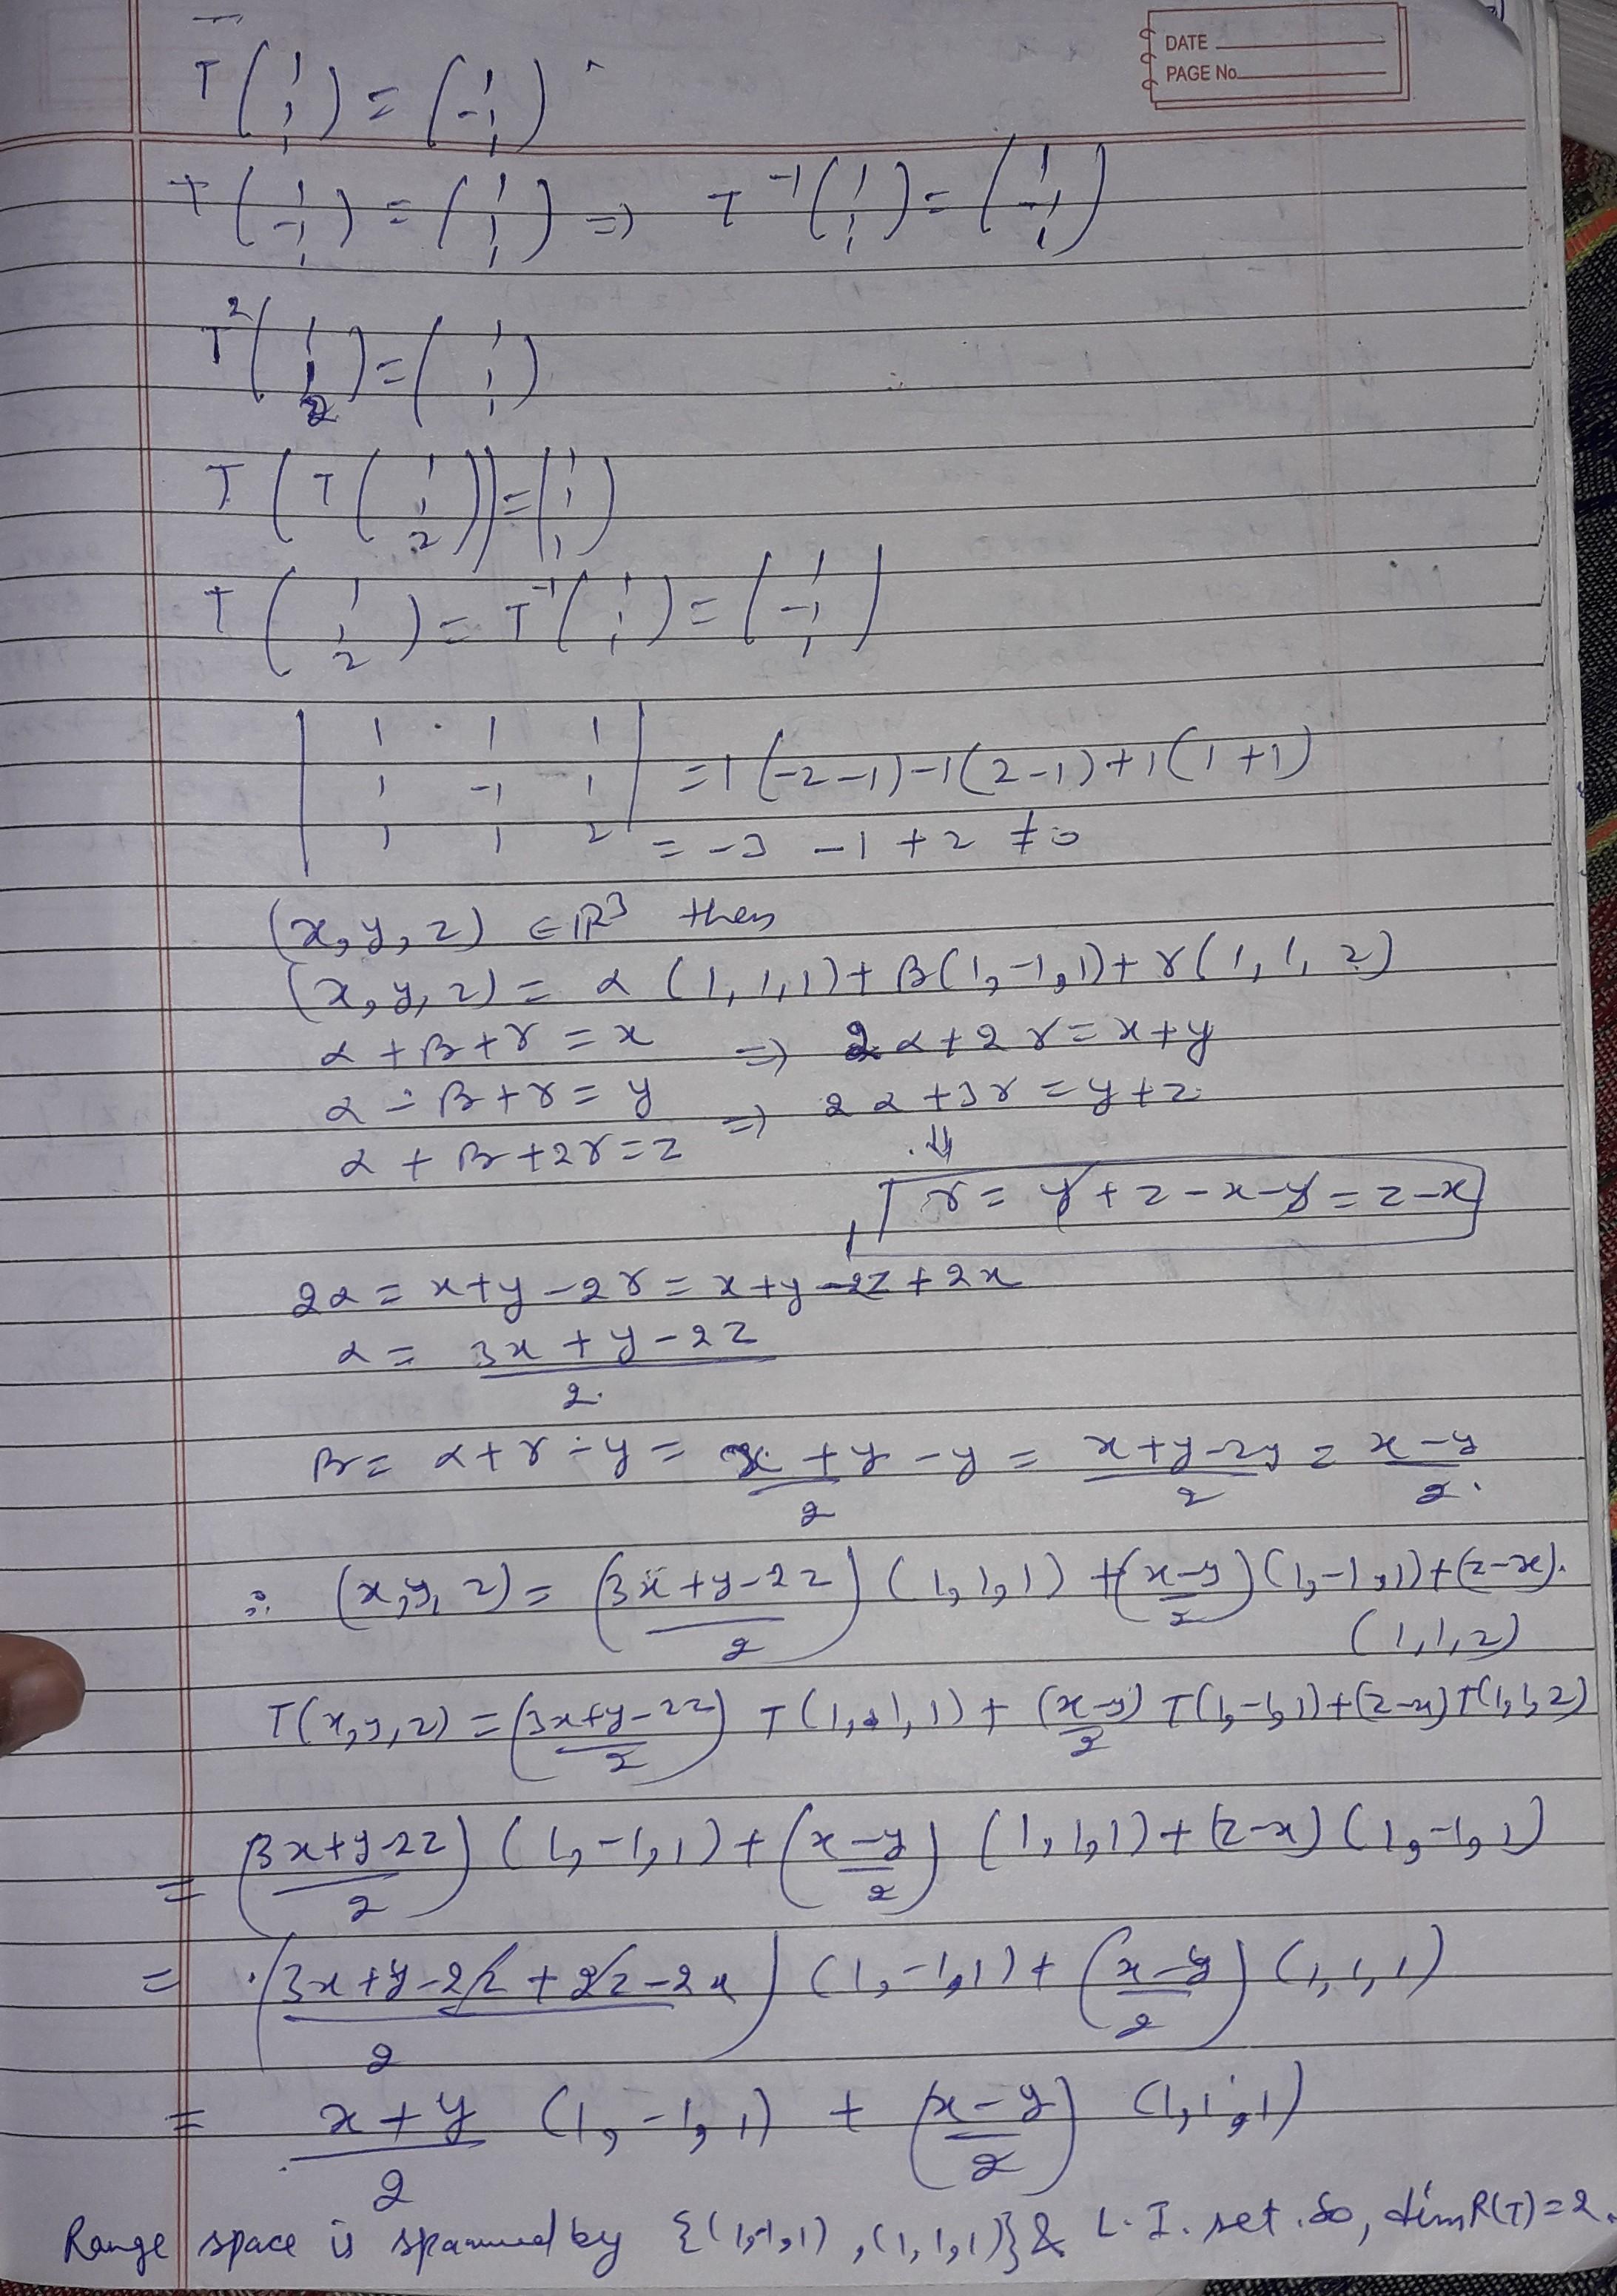 DATE
PAGE No.
T(1 1 1) = (1 -1 1)
T(1 -1 1) = (1 1 1) => T^-1(1 1 1) = (1 -1 1)
T^2(1 1 2) = (1 1 1)
T(T(1 1 2)) = (1 1 1)
T(1 1 2) = T^-1(1 1 1) = (1 -1 1)
| 1 1 1 |
| 1 -1 1 | = 1(-2-1)-1(2-1)+1(1+1)
| 1 1 2 | = -3 -1 + 2 ≠ 0
(x, y, z) ∈ IR^3 then
(x, y, z) = α (1, 1, 1) + β(1, -1, 1) + γ(1, 1, 2)
α + β + γ = x => 2α + 2γ = x + y
α - β + γ = y => 2α + 3γ = y + z
α + β + 2γ = z ⇓
γ = y + z - x - y = z - x
2α = x + y - 2γ = x + y - 2z + 2x
α = (3x + y - 2z)/2.
β = α + γ - y = (x + y)/2 - y = (x + y - 2y)/2 = (x - y)/2.
∴ (x, y, z) = ((3x + y - 2z)/2) (1, 1, 1) + ((x - y)/2) (1, -1, 1) + (z - x).
(1, 1, 2)
T(x, y, z) = ((3x + y - 2z)/2) T(1, 1, 1) + ((x - y)/2) T(1, -1, 1) + (z - x) T(1, 1, 2)
= ((3x + y - 2z)/2) (1, -1, 1) + ((x - y)/2) (1, 1, 1) + (z - x) (1, -1, 1)
= ((3x + y - 2z + 2z - 2x)/2) (1, -1, 1) + ((x - y)/2) (1, 1, 1)
= (x + y)/2 (1, -1, 1) + ((x - y)/2) (1, 1, 1)
Range space is spanned by {(1, -1, 1), (1, 1, 1)} & L. I. set. So, dim R(T) = 2.